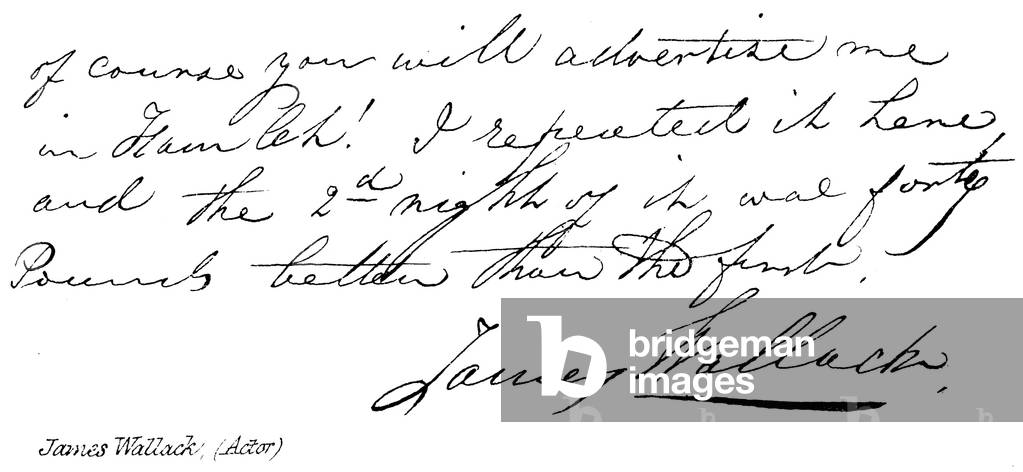 of course you will advertise me
in Hamlet! I repeated it here,
and the 2d night of it was forty
Pounds better than the first.
James Wallack.
bridgeman
images
James Wallack, (Actor)